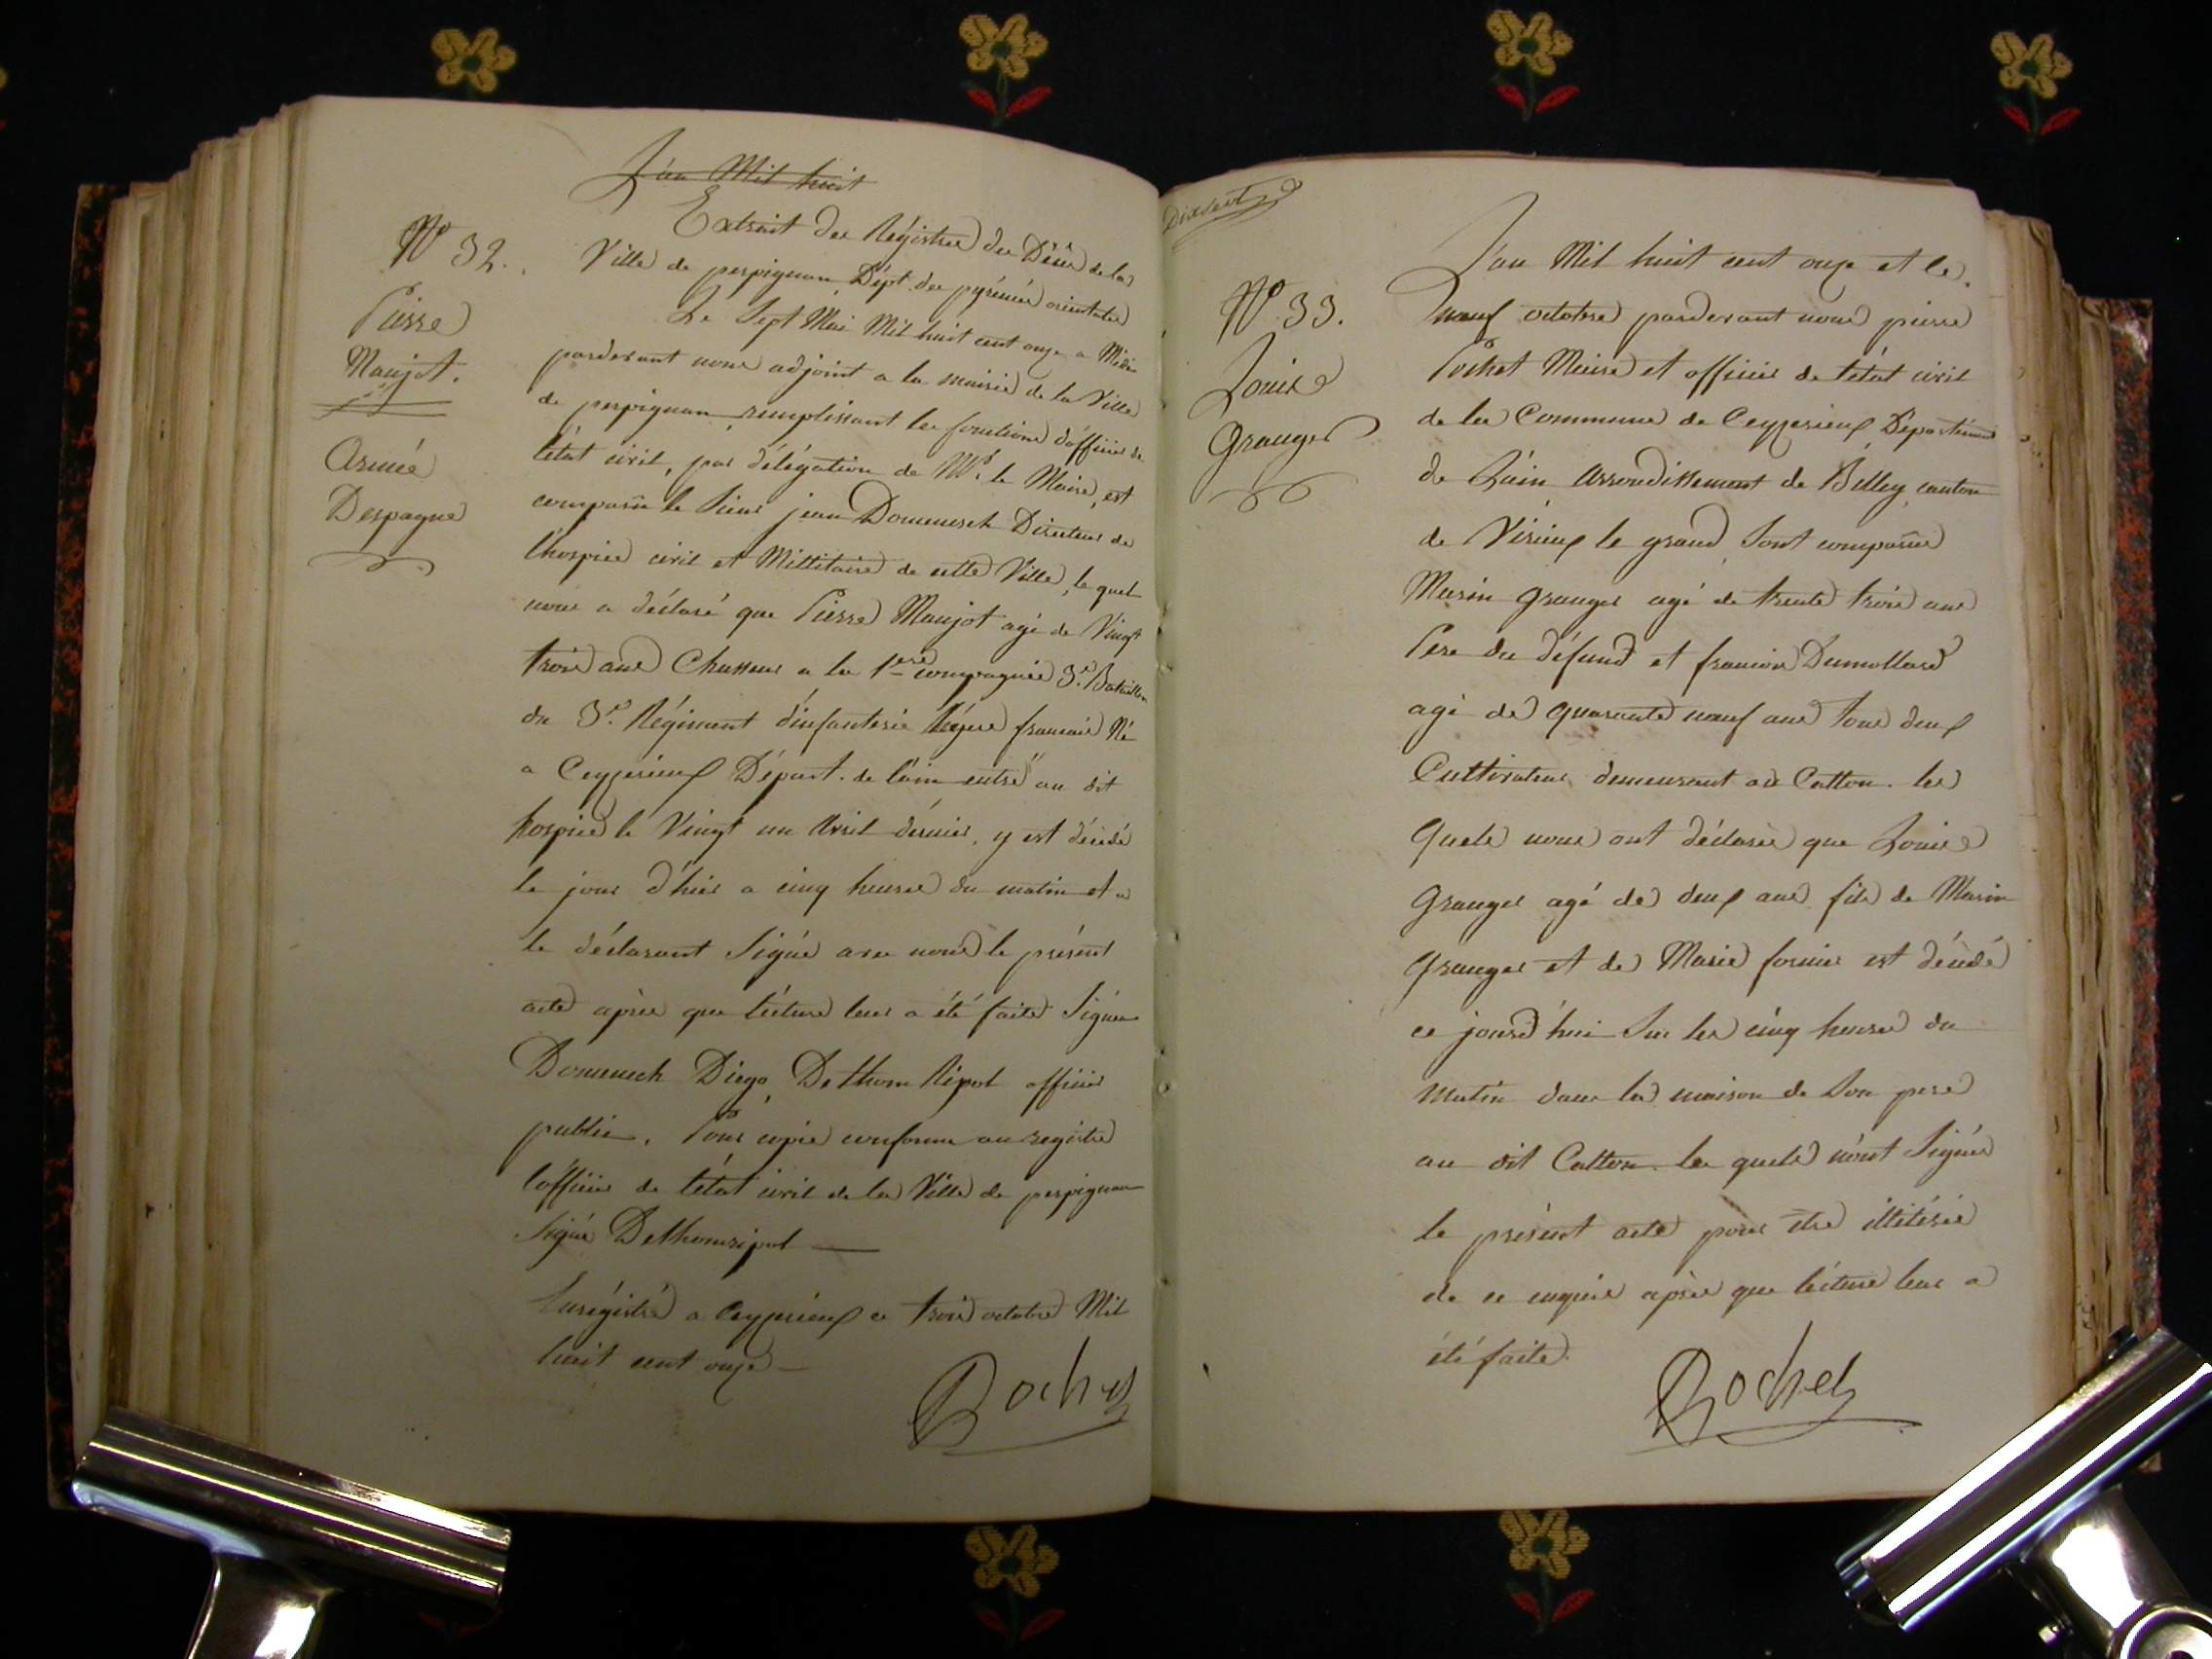 L'an Mil huit
Extrait des Régistres des Décès de la
Ville de perpignan Dépt. des pyrénées orientales
N° 32.
Pierre
Maujot.
Armée
Despagne
Le Sept Mai Mil huit cent onze a Midi
pardevant nous adjoint a la mairie de la Ville
de perpignan remplissant les fonctions d'officier de
l'état civil, par délégation de Mr. le Maire, est
comparu le Sieur jean Domenech Directeur de
l'hospice civil et Millitaire de cette Ville, le quel
nous a déclaré que Pierre Maujot agé de Vingt
trois ans Chasseur a la 1ere compagnie 3e. Bataillon
du 3e. Régiment d'infanterie légere francais Né
a Ceyzerieux Départ. de l'ain entré au dit
hospice le Vingt un Avril dérnier, y est décédé
le jour d'hier a cinq heures du matin et a
le déclarant Signé avec nous le présent
acte après que lécture leur a été faite Signés
Domenech Diego, Delhom Ripol officier
public. Pour copie conforme au registre
l'officier de l'état civil de la Ville de perpignan
Signé Delhomripol —
Enrégistré a Ceyzerieux ce trois octobre Mil
huit cent onze —
Pochet
Dixsept
N° 33.
Louis
Granger
L'an Mil huit cent onze et le
Neuf octobre pardevant nous pierre
Pochet Maire et officier de l'état civil
de la Commune de Ceyzerieux, Département
de L'ain Arrondissement de Belley, canton
de Virieux le grand, Sont comparus
Marin granger agé de trente trois ans
Pere du défund et francois Dumollard
agé de quarante neuf ans tous deux
Cultivateurs demeurant au Catton. les
Quels nous ont déclarés que Louis
Granger agé de deux ans fils de Marin
Granger et de Marie fornier est décédé
ce jourd'hui Sur les cinq heures du
matin dans la maison de Son pere
au dit Catton. les quels n'ont Signés
le présent acte pour être illitérés
de ce enquis après que lécture leur a
été faite.
Pochet